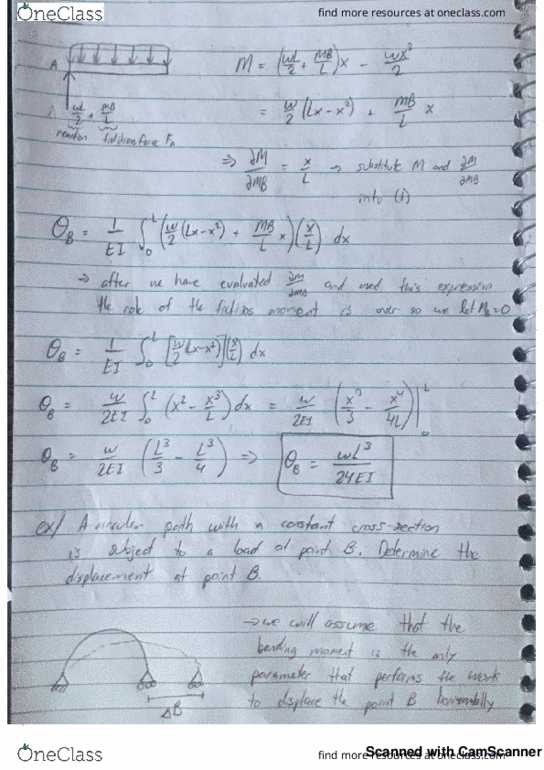 OneClass
find more resources at oneclass.com
A
M = (wL/2 + MB/L)x - wx²/2
wL/2 + MB/L
= w/2 (Lx-x²) + MB/L x
reaction
⇒ ∂M/∂MB = x/L → substitute M and ∂M/∂MB
into (i)
θB = 1/EI ∫₀ᴸ (w/2 (Lx-x²) + MB/L x)(x/L) dx
→ after we have evaluated ∂M/∂MB and used this expression
the role of the fictitious moment is over so we let MB=0
θB = 1/EI ∫₀ᴸ [w/2 (Lx-x²)](x/L) dx
θB = w/2EI ∫₀ᴸ (x² - x³/L) dx = w/2EI (x³/3 - x⁴/4L)|₀ᴸ
θB = w/2EI (L³/3 - L³/4) ⇒ θB = wL³/24EI
ex/ A circular path with a constant cross-section
is subject to a load at point B. Determine the
displacement at point B.
→ we will assume that the
bending moment is the only
parameter that performs the work
to displace the point B horizontally
ΔB
OneClass
find more resources at oneclass.com
Scanned with CamScanner